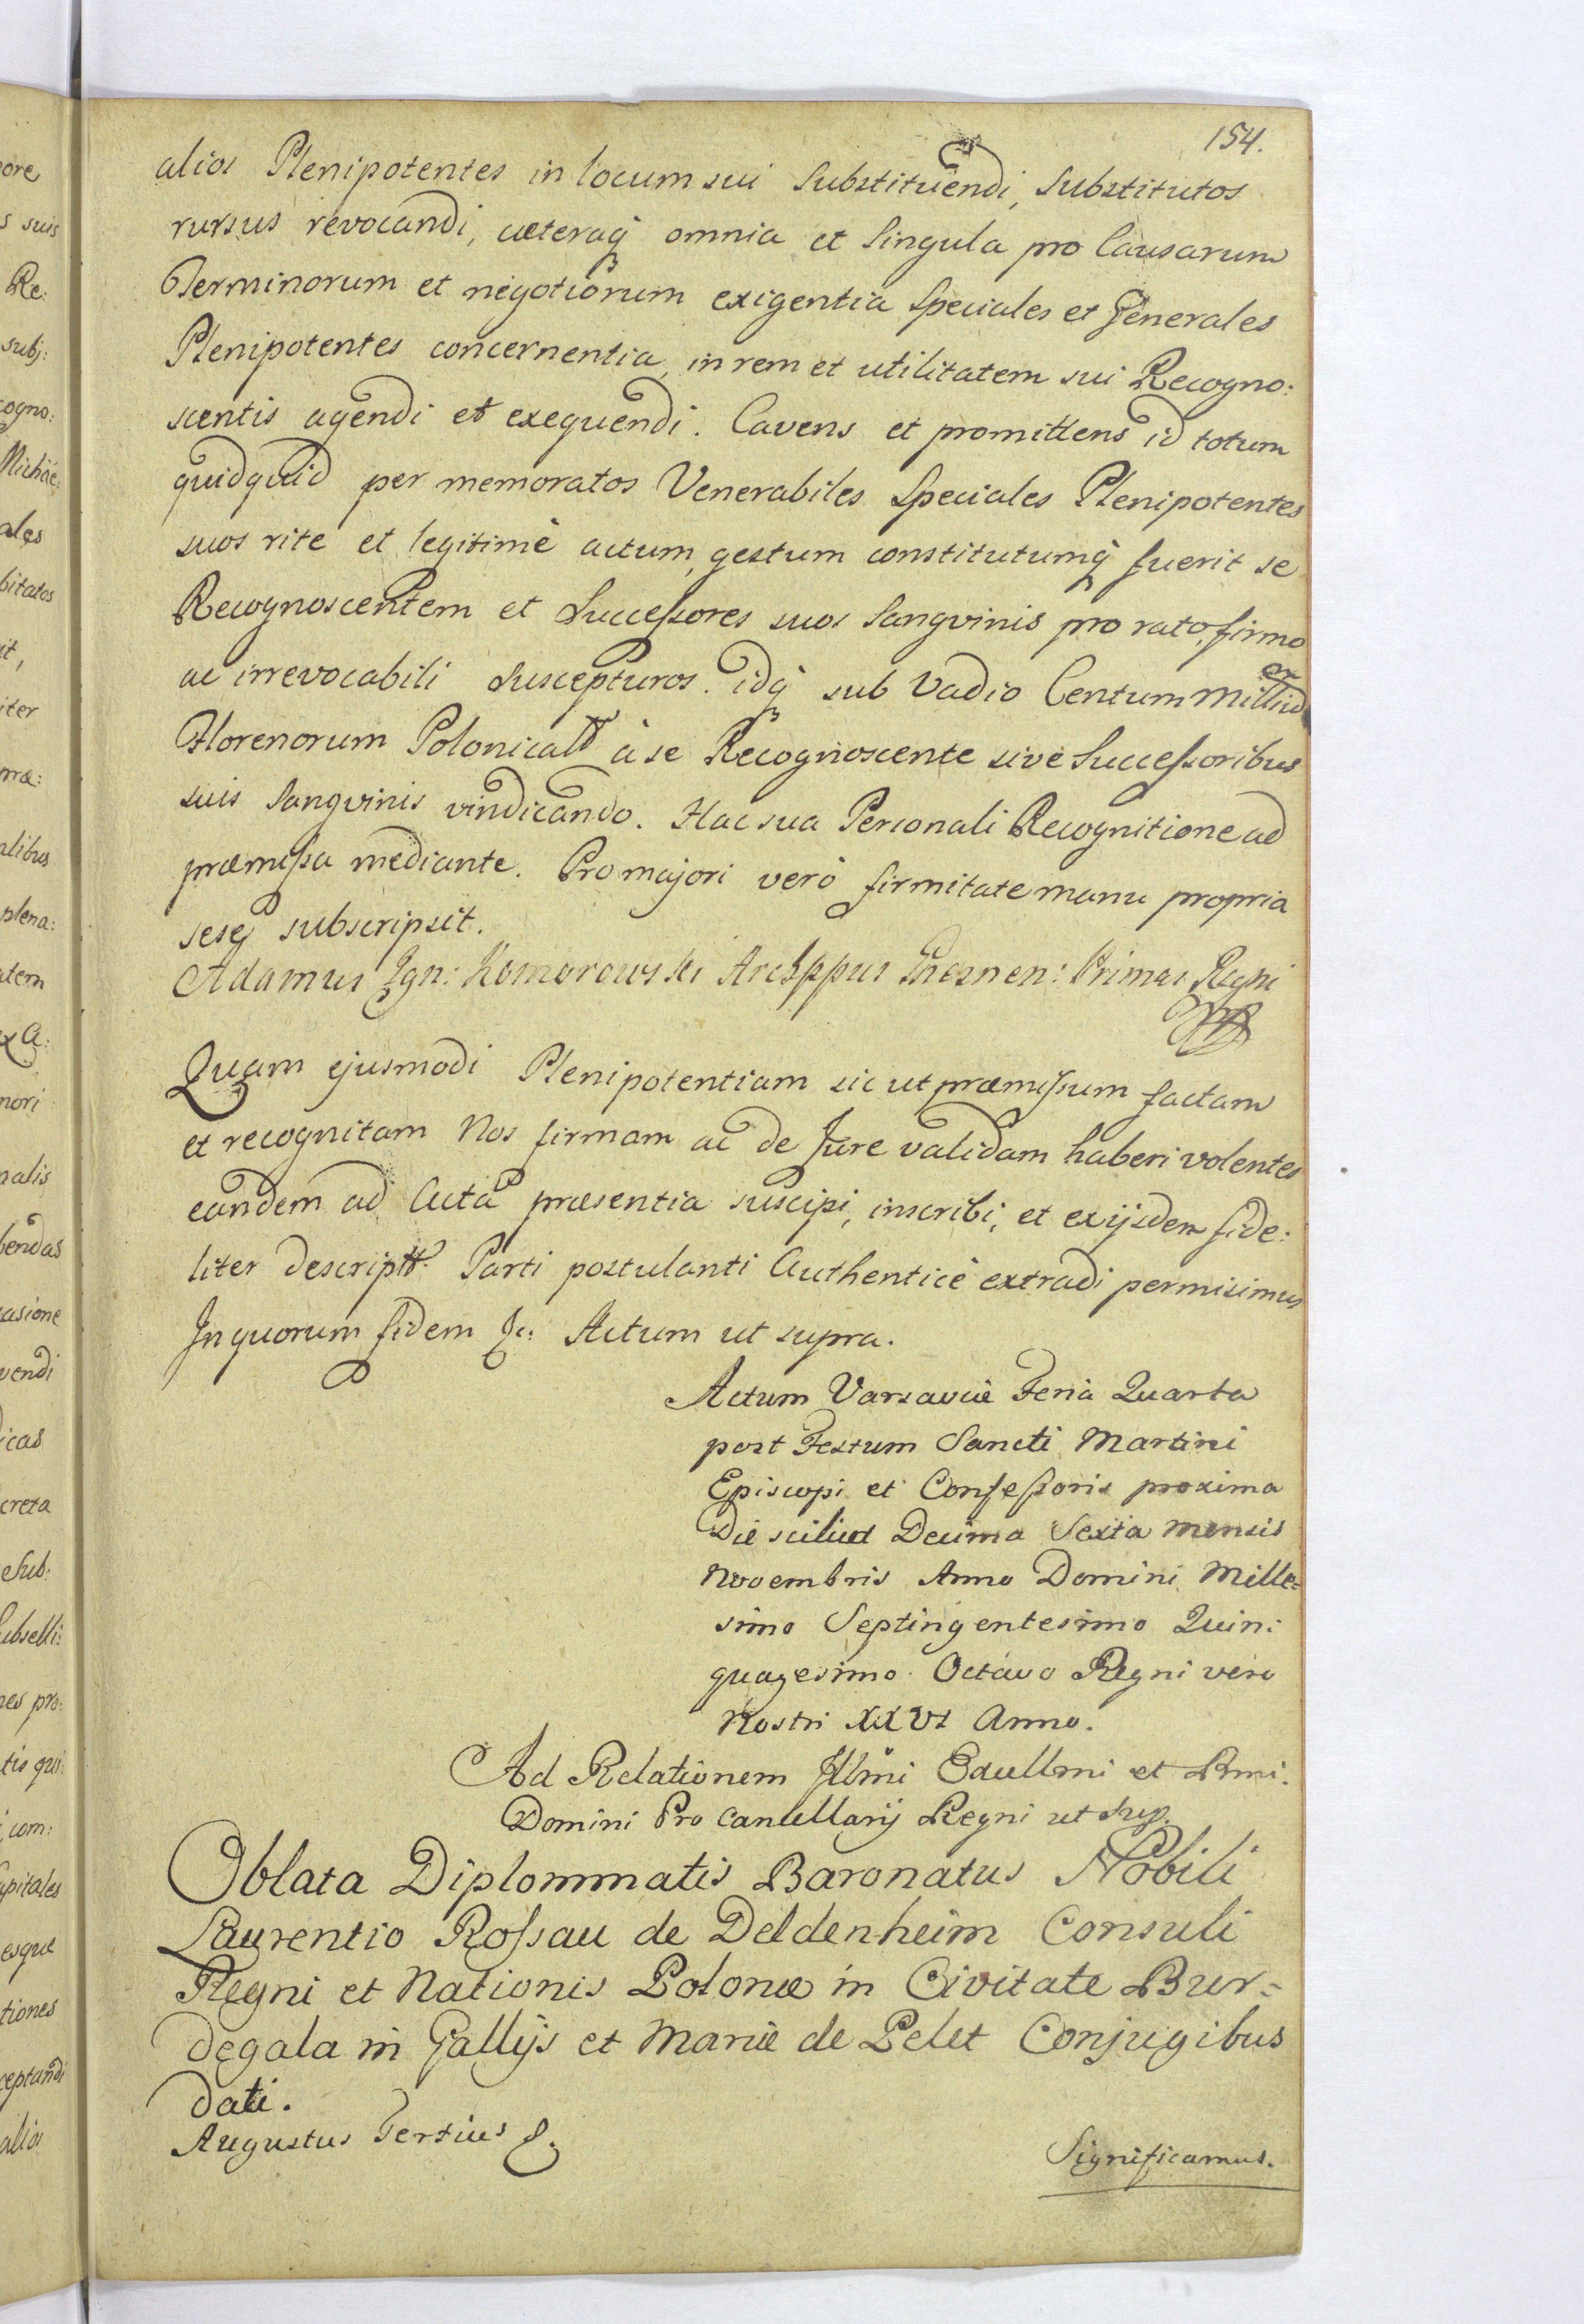 154.
alios Plenipotentes in locum sui Substituendi, Substitutos
rursus revocandi, cæteraq̃ omnia et Singula pro Causarum
Terminorum et negotiorum exigentia Speciales et Generales
Plenipotentes concernentia, in rem et utilitatem sui Recogno:
scentis agendi et exequendi. Cavens et promittens id totum
quidquid per memoratos Venerabiles Speciales Plenipotentes
suos rite et legitimè actum, gestum constitutumq̃ fuerit se
Recognoscentem et Successores suos Sangvinis pro rato, firmo
ac irrevocabili Suscepturos. idq̃ sub Vadio Centum Milliũ
Florenorum Polonical à se Recognoscente sive Successoribus
suis Sangvinis vindicando. Hac sua Personali Recognitione ad
præmissa mediante. Pro majori verò firmitate manu propria
seseq̃ subscripsit.
Adamus Ign: Komorowski Archppus Gnesnen: Primas Regni
Quam ejusmodi Plenipotentiam sic ut præmissum factam
et recognitam Nos firmam ac de Jure validam haberi volentes
eandem ad Acta præsentia suscipi, inscribi, et ex ijsdem fide:
liter descriptt. Parti postulanti Authenticè extradi permisimus
In quorum fidem &c: Actum ut supra.
Actum Varsaviæ Feria Quarta
post Festum Sancti Martini
Episcopi et Confessoris proxima
Die scilicet Decima Sexta mensis
Novembris Anno Domini Mille=
simo Septingentesimo Quin:
quagesimo Octavo Regni vero
Nostri XXVI Anno.
Ad Relationem Illmi Excellmi et Rmi.
Domini Pro Cancellarij Regni ut sup.
Oblata Diplommatis Baronatus Nobili
Laurentio Rossau de Deldenheim Consuli
Regni et Nationis Polonæ in Civitate Bur=
degala in Gallijs et Mariæ de Pelet Conjugibus
dati.
Augustus Tertius &.
Significamus.